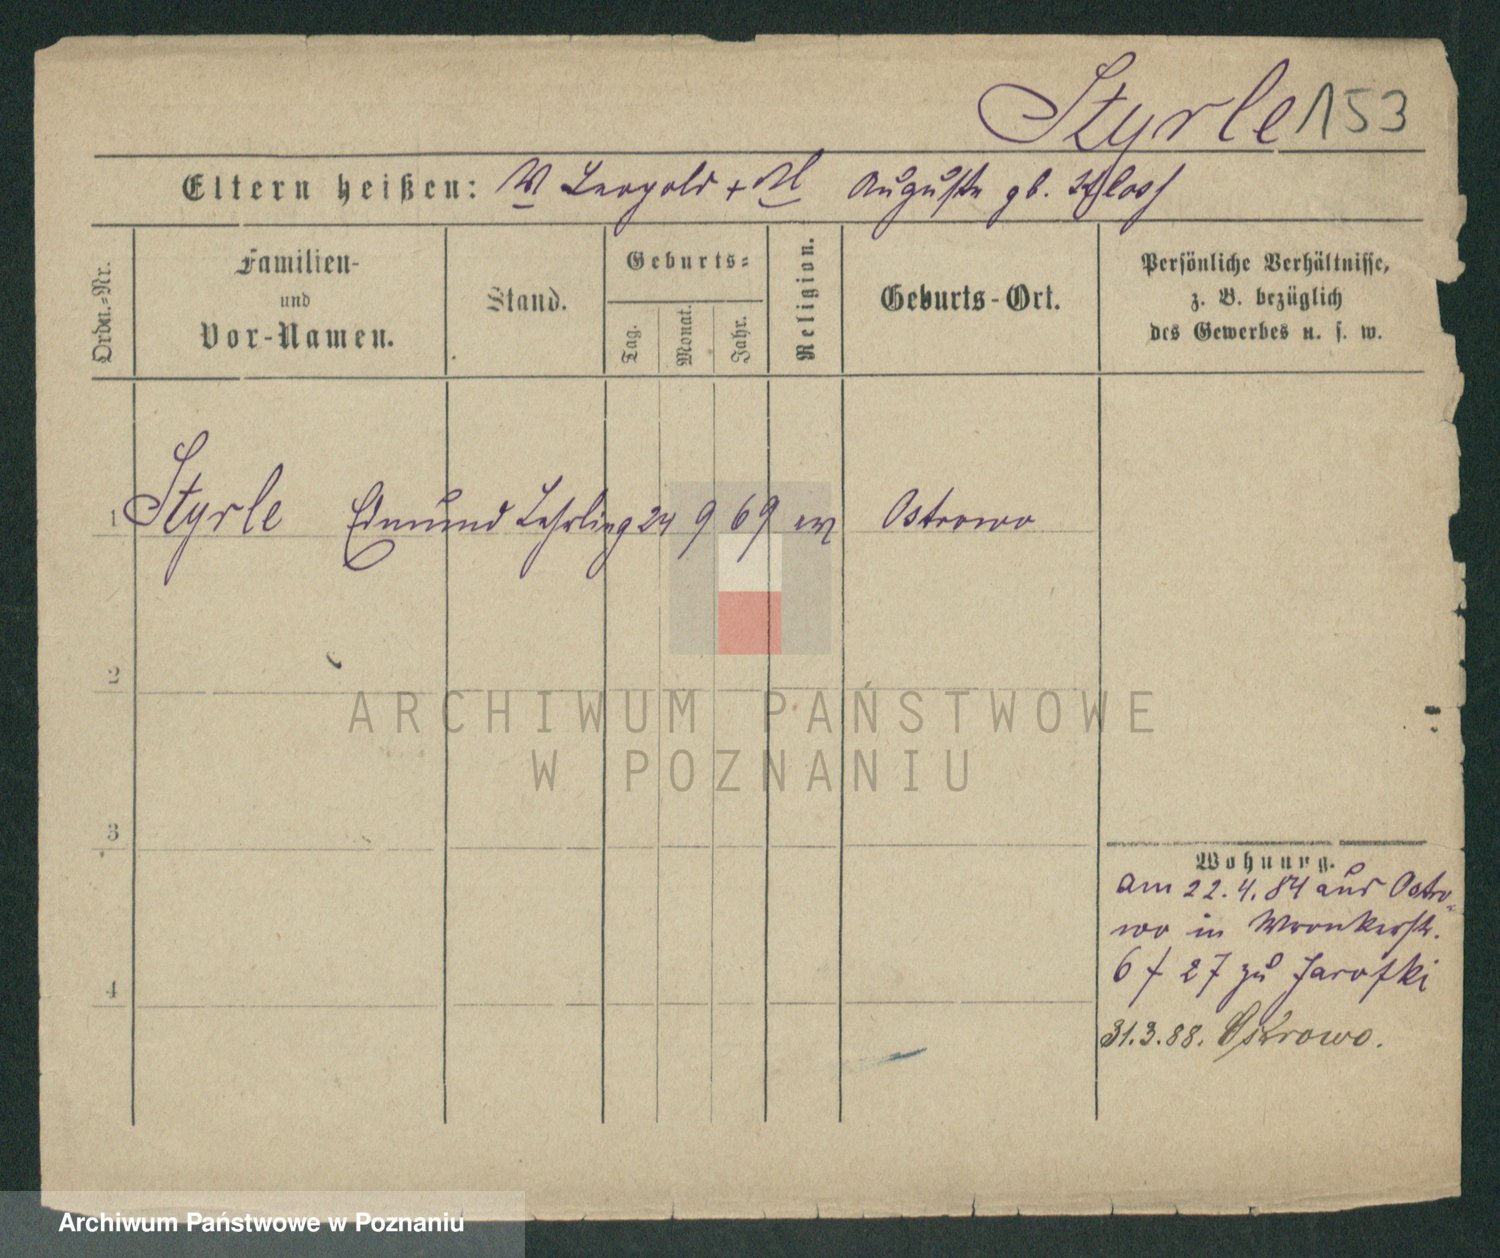 Styrle 153
Eltern heißen: V Leopold + M Auguste gb. Schloss
Ordn.-Nr.
Familien-
und
Vor-Namen.
Stand.
Geburts-
Tag.
Monat.
Jahr.
Religion.
Geburts-Ort.
Persönliche Verhältnisse,
z. B. bezüglich
des Gewerbes u. s. w.
1 Styrle Edmund Lehrling 24 9 69 ev Ostrowo
2
3
4
Wohnung.
am 22.4.84 aus Ostro-
wo in Wronkerstr.
6 / 27 zu Jarotzki
31.3.88. Ostrowo.
ARCHIWUM PAŃSTWOWE
W POZNANIU
Archiwum Państwowe w Poznaniu